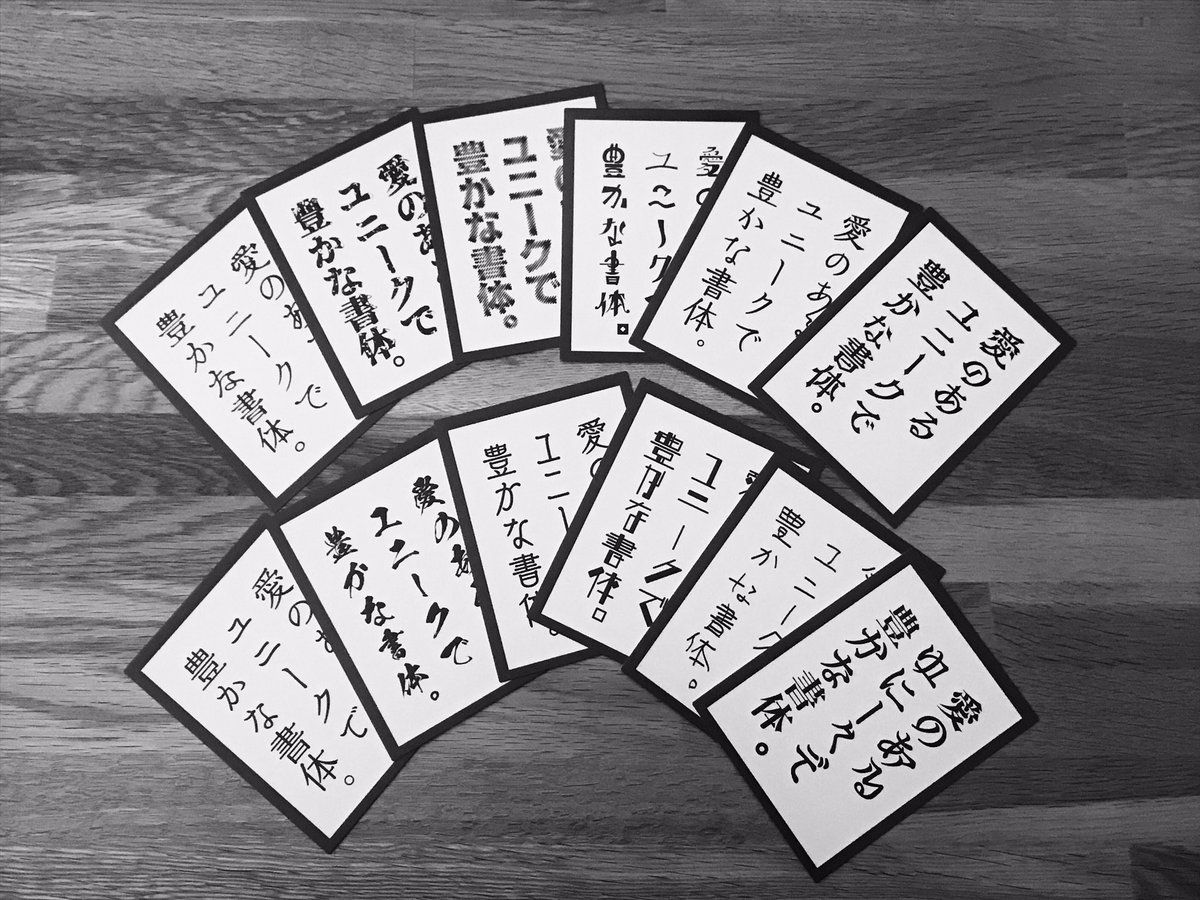 愛のあ
ユニークで
豊かな書体。
愛のあ
ユニークで
豊かな書体。
愛の
ユニークで
豊かな書体。
愛の
ユニーク
豊かな書体。
愛のある
ユニークで
豊かな書体。
愛のある
ユニークで
豊かな書体。
愛のあ
ユニークで
豊かな書体。
愛のある
ユニークで
豊かな書体。
愛の
ユニー
豊かな書体。
ユニークで
豊かな書体。
ユニーク
豊かな書体。
愛のある
ゆにークデ
豊かな書体。